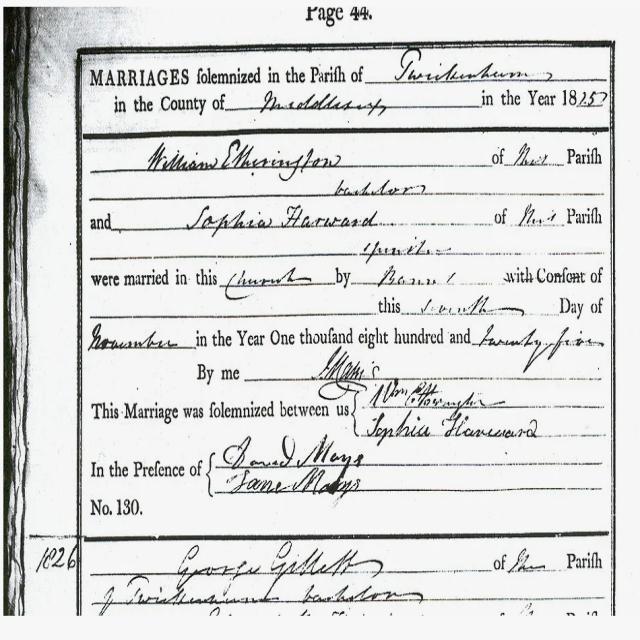 Page 44.
MARRIAGES solemnized in the Parish of Twickenham
in the County of Middlesex in the Year 1825
William Etherington of this Parish
bachelor
and Sophia Harward of this Parish
spinster
were married in this Church by Banns with Consent of
this seventh Day of
November in the Year One thousand eight hundred and twenty five
By me
This Marriage was solemnized between us Wm Etherington
Sophia Harward
In the Presence of David Mays
Jane Mays
No. 130.
1826 George Gillett of the Parish
of Twickenham bachelor